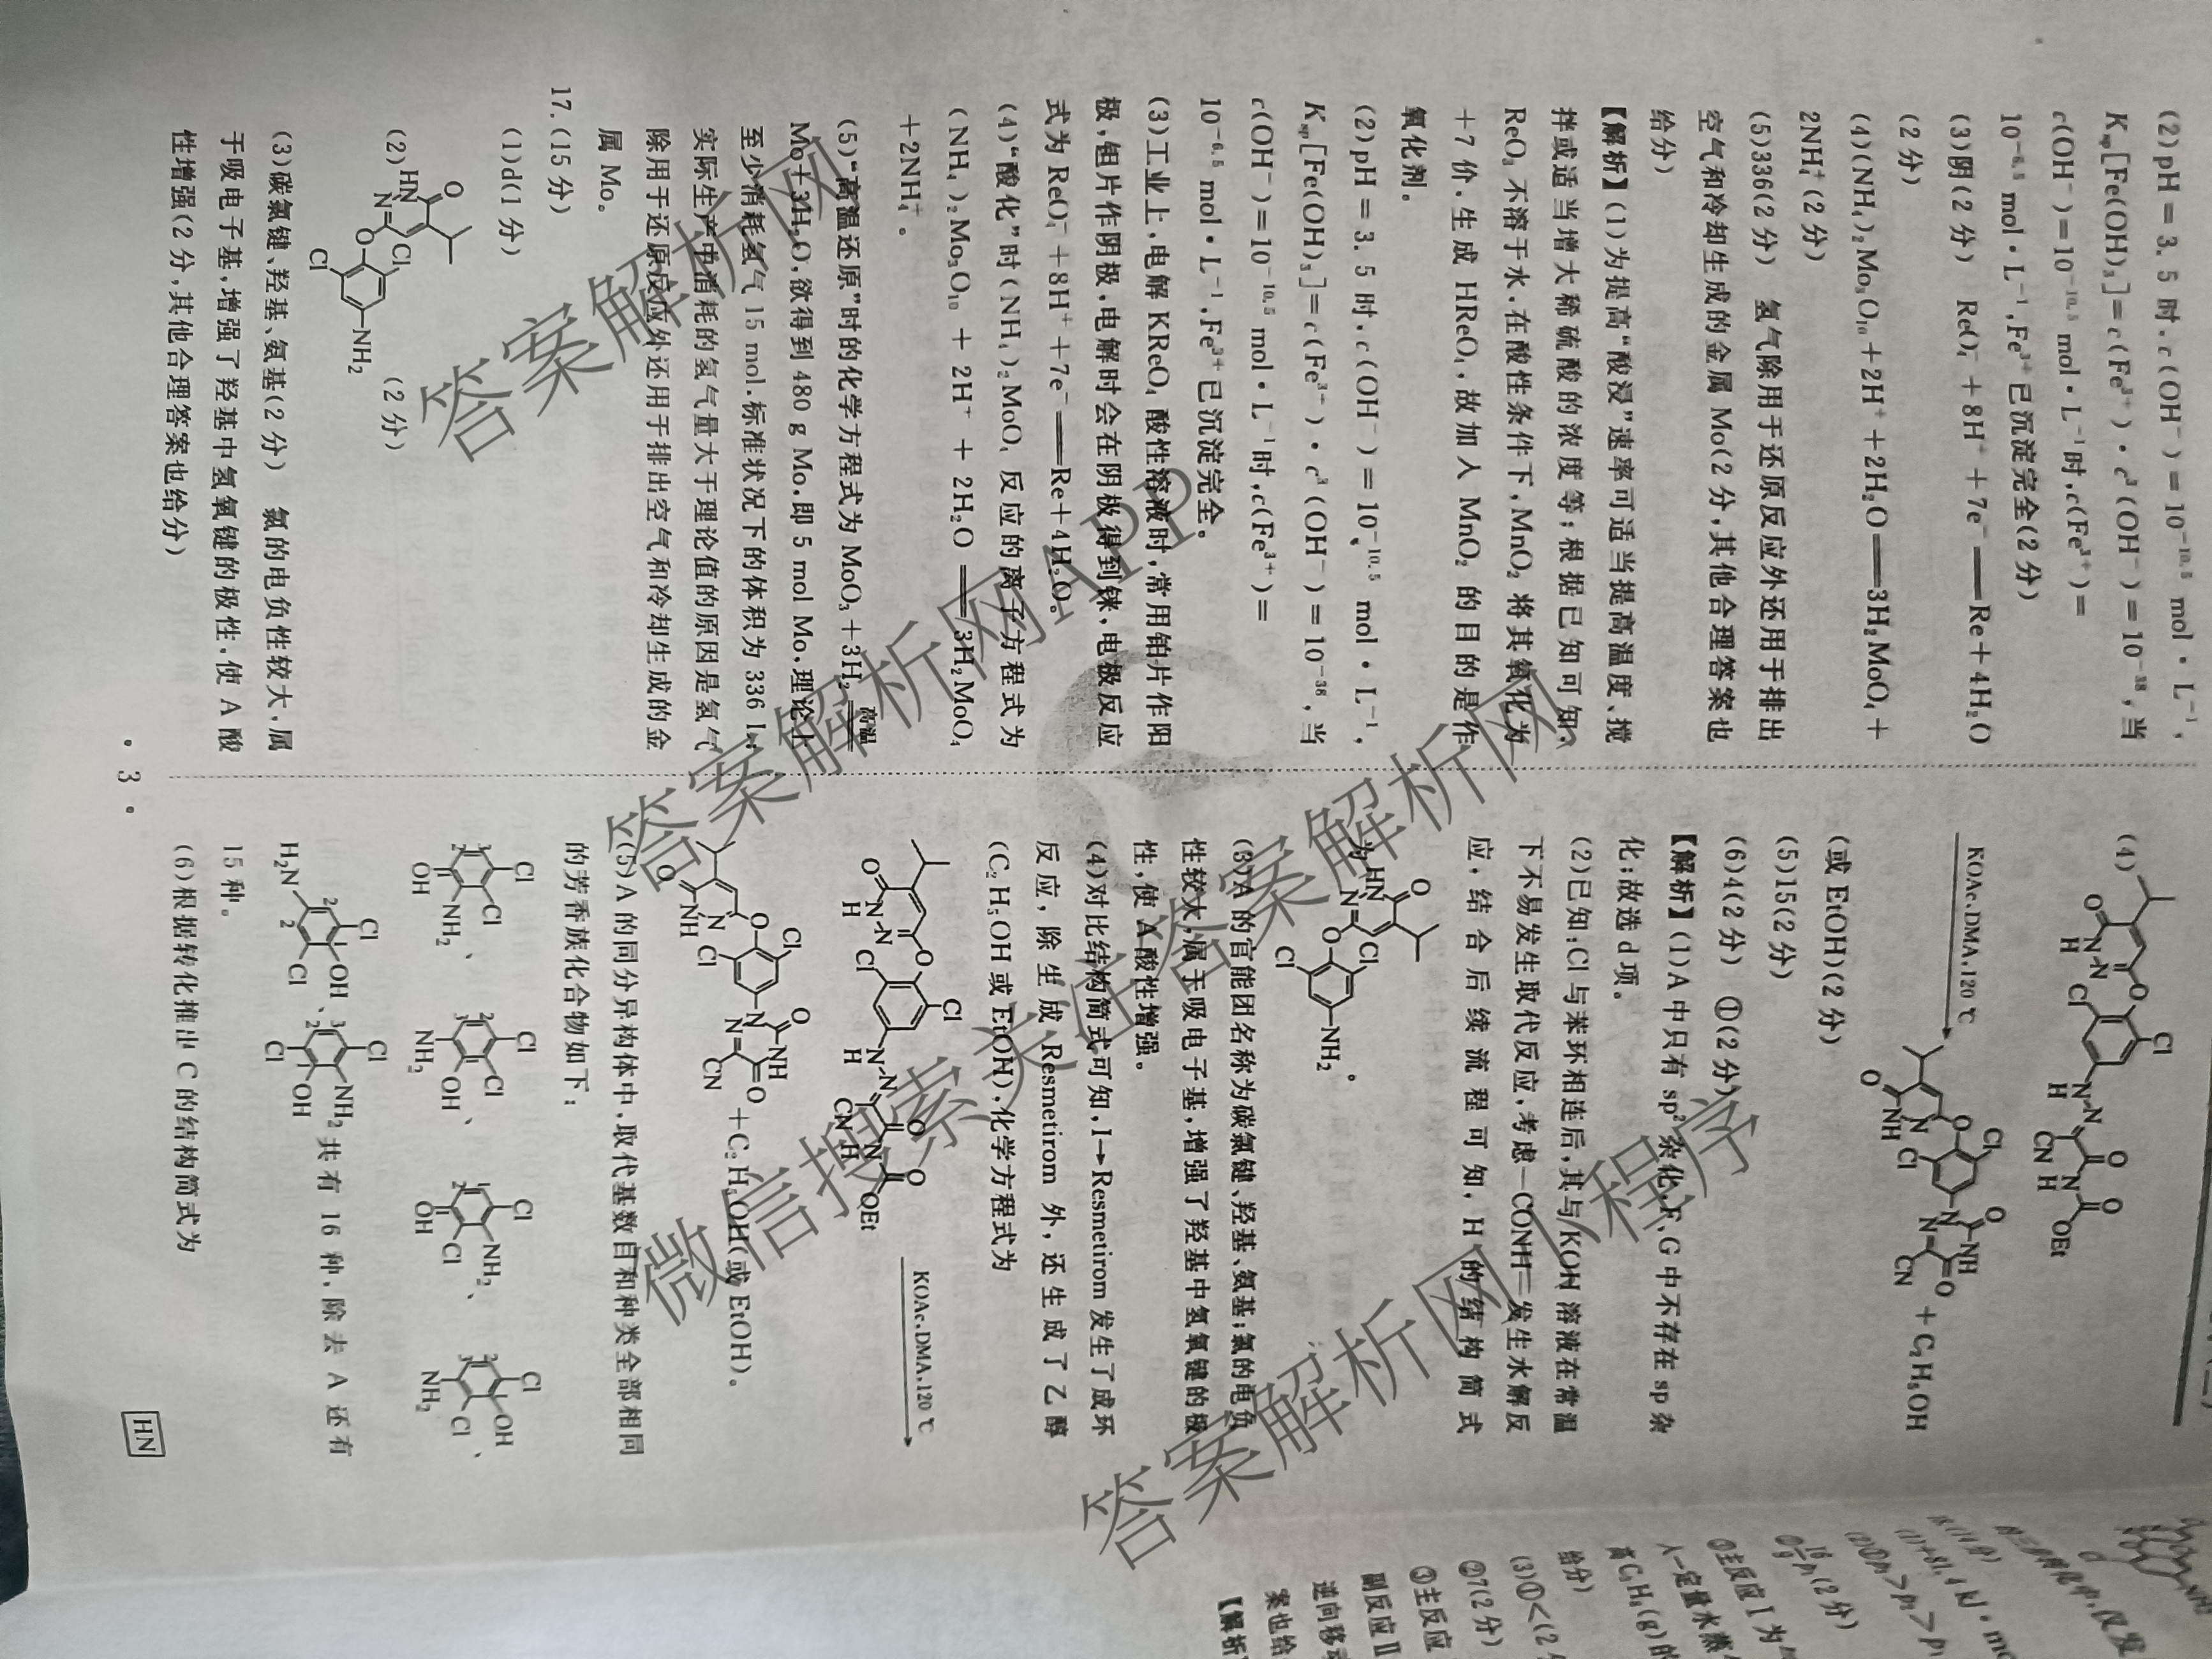 (2)pH=3.5时,c(OH⁻)=10⁻¹⁰·⁵ mol·L⁻¹,
Kₛₚ[Fe(OH)₃]=c(Fe³⁺)·c³(OH⁻)=10⁻³⁸,当
c(OH⁻)=10⁻¹⁰·⁵ mol·L⁻¹时,c(Fe³⁺)=
10⁻⁶·⁵ mol·L⁻¹,Fe³⁺已沉淀完全(2分)
(3)阴(2分) ReO₄⁻+8H⁺+7e⁻══Re+4H₂O
(2分)
(4)(NH₄)₂Mo₃O₁₀+2H⁺+2H₂O══3H₂MoO₄+
2NH₄⁺(2分)
(5)336(2分) 氢气除用于还原反应外还用于排出
空气和冷却生成的金属Mo(2分,其他合理答案也
给分)
【解析】(1)为提高“酸浸”速率可适当提高温度、搅
拌或适当增大稀硫酸的浓度等;根据已知可知,
ReO₃不溶于水,在酸性条件下,MnO₂将其氧化为
+7价,生成HReO₄,故加入MnO₂的目的是作
氧化剂。
(2)pH=3.5时,c(OH⁻)=10⁻¹⁰·⁵ mol·L⁻¹,
Kₛₚ[Fe(OH)₃]=c(Fe³⁺)·c³(OH⁻)=10⁻³⁸,当
c(OH⁻)=10⁻¹⁰·⁵ mol·L⁻¹时,c(Fe³⁺)=
10⁻⁶·⁵ mol·L⁻¹,Fe³⁺已沉淀完全。
(3)工业上,电解KReO₄酸性溶液时,常用铂片作阳
极,钽片作阴极,电解时会在阴极得到铼,电极反应
式为ReO₄⁻+8H⁺+7e⁻══Re+4H₂O。
(4)“酸化”时(NH₄)₂MoO₄反应的离子方程式为
(NH₄)₂Mo₃O₁₀+2H⁺+2H₂O══3H₂MoO₄
+2NH₄⁺。
(5)“高温还原”时的化学方程式为MoO₃+3H₂ 高温
Mo+3H₂O,欲得到480 g Mo,即5 mol Mo,理论上
至少消耗氢气15 mol,标准状况下的体积为336 L;
实际生产中消耗的氢气量大于理论值的原因是氢气
除用于还原反应外还用于排出空气和冷却生成的金
属Mo。
17.(15分)
(1)d(1分)
(2) O HN N O Cl Cl NH₂ (2分)
(3)碳氯键、羟基、氨基(2分) 氯的电负性较大,属
于吸电子基,增强了羟基中氢氧键的极性,使A酸
性增强(2分,其他合理答案也给分)
·3·
(4) O N H N O Cl Cl N H N CN O N H O OEt
KOAc,DMA,120 ℃
O NH N O Cl Cl N N O NH O CN +C₂H₅OH
(或EtOH)(2分)
(5)15(2分)
(6)4(2分) ①(2分)
【解析】(1)A中只有sp²杂化,F、G中不存在sp杂
化;故选d项。
(2)已知:Cl与苯环相连后,其与KOH溶液在常温
下不易发生取代反应,考虑—CONH—发生水解反
应,结合后续流程可知,H的结构简式
为 O HN N O Cl Cl NH₂ 。
(3)A的官能团名称为碳氯键、羟基、氨基;氯的电负
性较大,属于吸电子基,增强了羟基中氢氧键的极
性,使A酸性增强。
(4)对比结构简式可知,I→Resmetirom发生了成环
反应,除生成Resmetirom外,还生成了乙醇
(C₂H₅OH或EtOH),化学方程式为
O N H N O Cl Cl N H N CN O N H O OEt
KOAc,DMA,120 ℃
O NH N O Cl Cl N N O NH O CN +C₂H₅OH(或EtOH)。
(5)A的同分异构体中,取代基数目和种类全部相同
的芳香族化合物如下:
Cl Cl NH₂ OH 、 Cl Cl OH NH₂ 、 Cl NH₂ Cl OH 、 Cl OH Cl NH₂ 、
Cl OH Cl H₂N 、 Cl NH₂ OH Cl 共有16种,除去A还有
15种。
(6)根据转化推出C的结构简式为
HN
答案解析网
答案解析网APP
答案解析网
微信搜索
答案解析网
(2分)
①主反应Ⅰ为
给分)
②7(2分)
③主反应
副反应Ⅱ
逆向移动
案也给
【解析